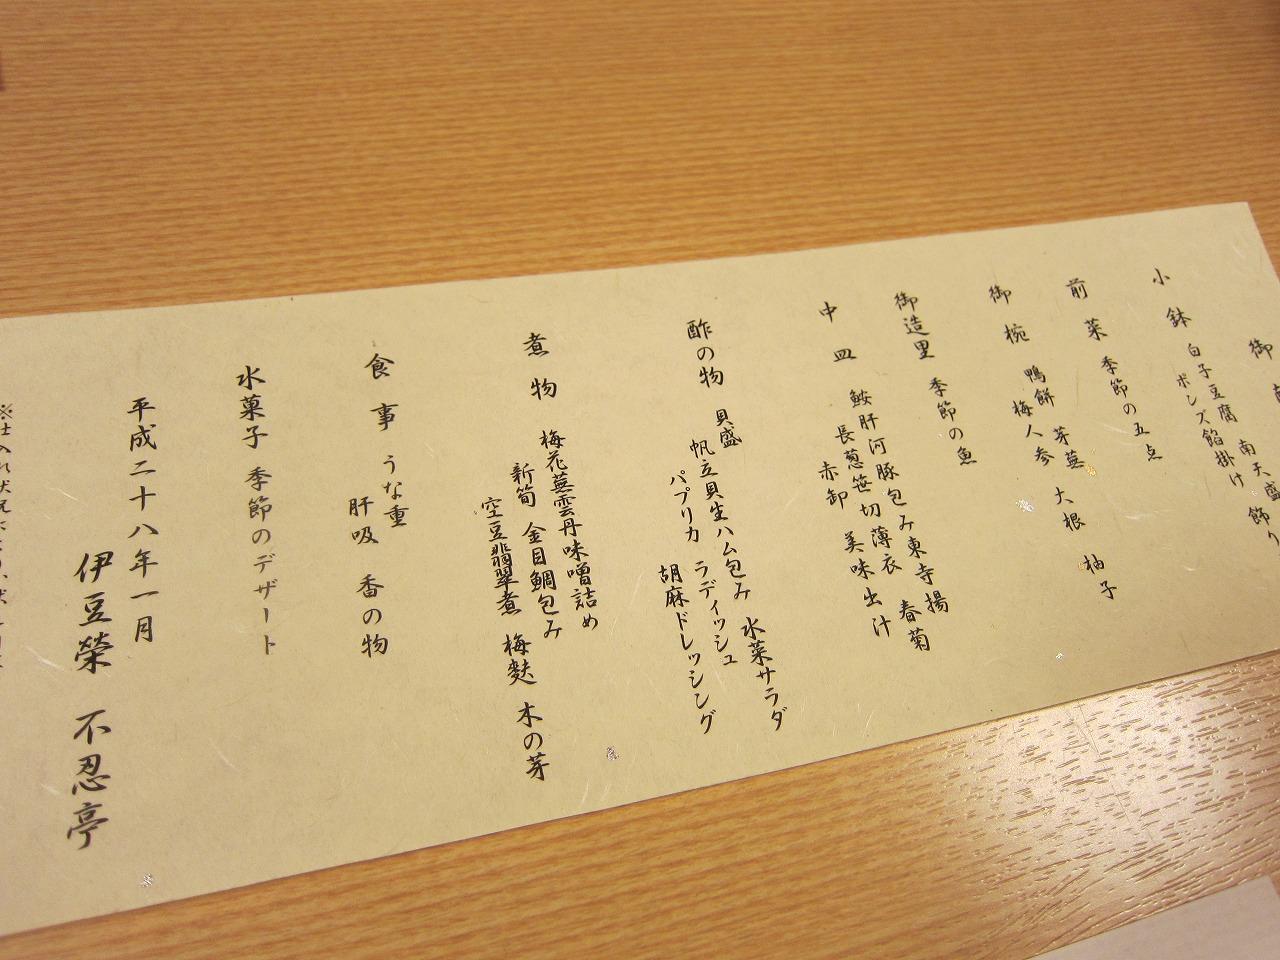 御
小鉢 白子豆腐 南天盛飾り
ポンズ餡掛け
前菜 季節の五点
御椀 鴨餅 芽蕪 大根 柚子
梅人参
御造里 季節の魚
中皿 鮟肝河豚包み東寺揚
長葱笹切薄衣 春菊
赤卸 美味出汁
酢の物 貝盛
帆立貝生ハム包み 水菜サラダ
パプリカ ラディッシュ
胡麻ドレッシング
煮物 梅花蕪雲丹味噌詰め
新筍 金目鯛包み
空豆翡翠煮 梅麩 木の芽
食事 うな重
肝吸 香の物
水菓子 季節のデザート
平成二十八年一月
伊豆榮 不忍亭
※仕入れ状況に